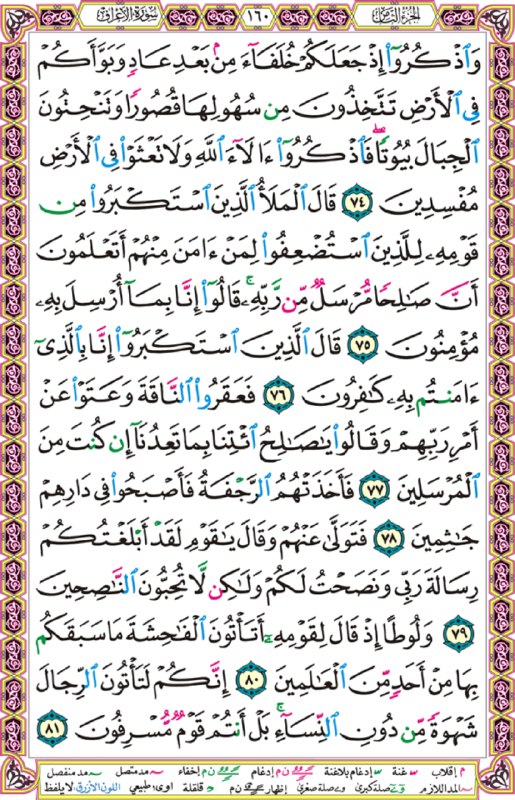 سورة الأعراف ١٦٠ الجزء الثامن
وَٱذۡكُرُوٓاْ إِذۡ جَعَلَكُمۡ خُلَفَآءَ مِنۢ بَعۡدِ عَادٖ وَبَوَّأَكُمۡ
فِي ٱلۡأَرۡضِ تَتَّخِذُونَ مِن سُهُولِهَا قُصُورٗا وَتَنۡحِتُونَ
ٱلۡجِبَالَ بُيُوتٗاۖ فَٱذۡكُرُوٓاْ ءَالَآءَ ٱللَّهِ وَلَا تَعۡثَوۡاْ فِي ٱلۡأَرۡضِ
مُفۡسِدِينَ ٧٤ قَالَ ٱلۡمَلَأُ ٱلَّذِينَ ٱسۡتَكۡبَرُواْ مِن
قَوۡمِهِۦ لِلَّذِينَ ٱسۡتُضۡعِفُواْ لِمَنۡ ءَامَنَ مِنۡهُمۡ أَتَعۡلَمُونَ
أَنَّ صَٰلِحٗا مُّرۡسَلٞ مِّن رَّبِّهِۦۚ قَالُوٓاْ إِنَّا بِمَآ أُرۡسِلَ بِهِۦ
مُؤۡمِنُونَ ٧٥ قَالَ ٱلَّذِينَ ٱسۡتَكۡبَرُوٓاْ إِنَّا بِٱلَّذِيٓ
ءَامَنتُم بِهِۦ كَٰفِرُونَ ٧٦ فَعَقَرُواْ ٱلنَّاقَةَ وَعَتَوۡاْ عَنۡ
أَمۡرِ رَبِّهِمۡ وَقَالُواْ يَٰصَٰلِحُ ٱئۡتِنَا بِمَا تَعِدُنَآ إِن كُنتَ مِنَ
ٱلۡمُرۡسَلِينَ ٧٧ فَأَخَذَتۡهُمُ ٱلرَّجۡفَةُ فَأَصۡبَحُواْ فِي دَارِهِمۡ
جَٰثِمِينَ ٧٨ فَتَوَلَّىٰ عَنۡهُمۡ وَقَالَ يَٰقَوۡمِ لَقَدۡ أَبۡلَغۡتُكُمۡ
رِسَالَةَ رَبِّي وَنَصَحۡتُ لَكُمۡ وَلَٰكِن لَّا تُحِبُّونَ ٱلنَّٰصِحِينَ
٧٩ وَلُوطًا إِذۡ قَالَ لِقَوۡمِهِۦٓ أَتَأۡتُونَ ٱلۡفَٰحِشَةَ مَا سَبَقَكُم
بِهَا مِنۡ أَحَدٖ مِّنَ ٱلۡعَٰلَمِينَ ٨٠ إِنَّكُمۡ لَتَأۡتُونَ ٱلرِّجَالَ
شَهۡوَةٗ مِّن دُونِ ٱلنِّسَآءِۚ بَلۡ أَنتُمۡ قَوۡمٞ مُّسۡرِفُونَ ٨١
م إقلاب غنة إدغام بلاغنة ن م إدغام ن م إخفاء مد متصل مد منفصل
المد اللازم صلة كبرى وصلة صغرى إظهار ن م قلقلة اوى: طبيعي اللون الأزرق: لا يلفظ